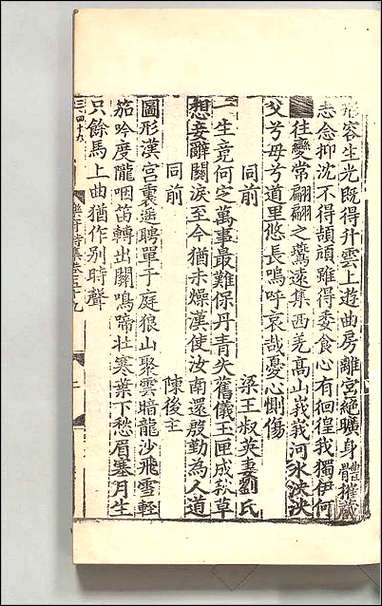 形容生光既得升雲上遊曲房離宮絶曠身體摧藏
志念抑沈不得頡頏雖得委食心有徊徨我獨伊何
往變常翩翩之鷰遠集西羌高山峩峩河水泱泱
父兮母兮道里悠長嗚呼哀哉憂心惻傷
同前 梁王叔英妻劉氏
一生竟何定萬事最難保丹青失舊儀玉匣成秋草
想妾辭關淚至今猶未燥漢使汝南還慇勤為人道
同前 陳後主
圖形漢宮裏遥聘單于庭狼山聚雲暗龍沙飛雪輕
笳吟度隴咽笛轉出關鳴啼粧寒葉下愁眉塞月生
只餘馬上曲猶作别時聲
樂府詩集卷五十九